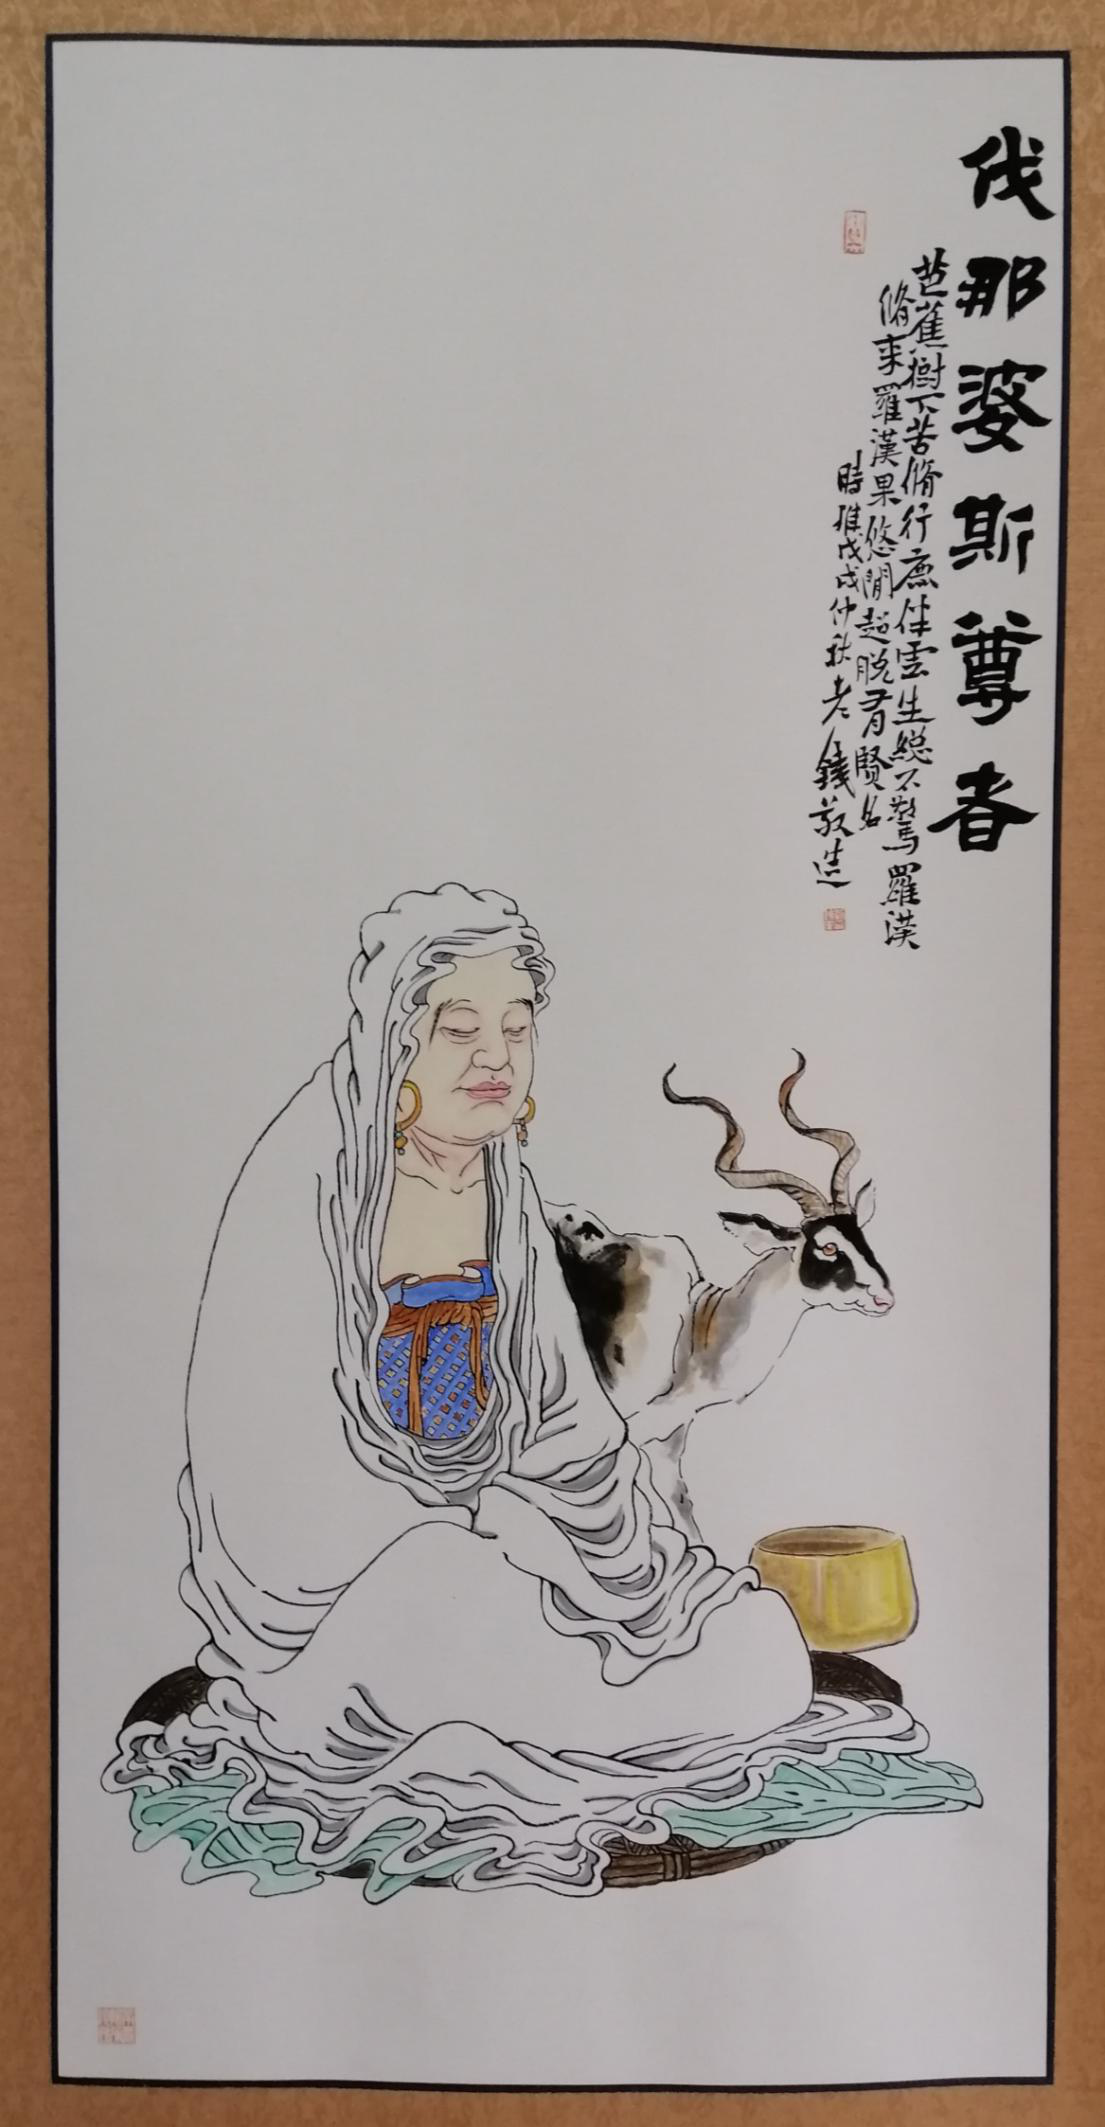 伐那婆斯尊者
芭蕉樹下苦脩行鹿伴雲生總不驚羅漢
脩来羅漢果悠閒超脱有賢名
時維戊戌仲秋老錢敬造